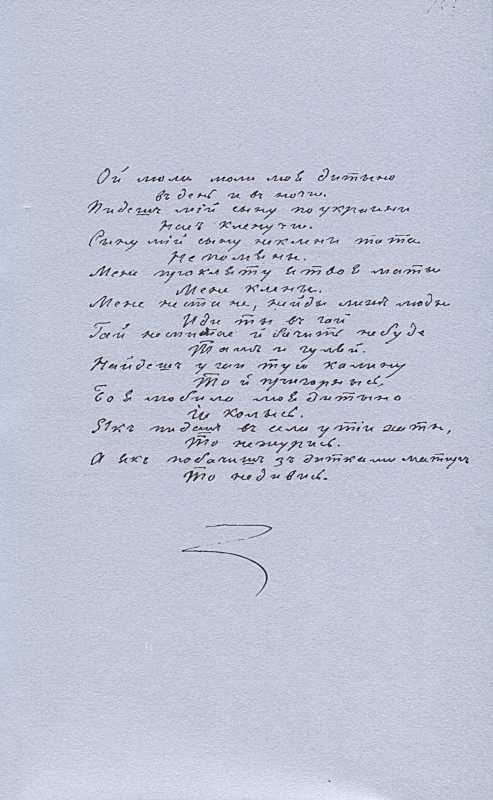 Ой люли люли моя дитыно
въ день и въ ночи.
Пидешъ мій сыну по украини
Насъ кленучи.
Сыну мій сыну не клены тата
Не помьяны.
Мене прокляту я твоя маты
Мене клены.
Мене не стане, не йды межъ люды
Иди ты въ гай
Гай не спытае й бачить не буде
Тамъ и гуляй.
Найдешъ у гаи туй калыну
То й пригорнысь.
Бо я любила моя дитыно
Ія колысь.
Якъ пидешъ въ села у тіи хаты,
То не журысь.
А якъ побачишъ зъ дитками матирь
То не дивысь.